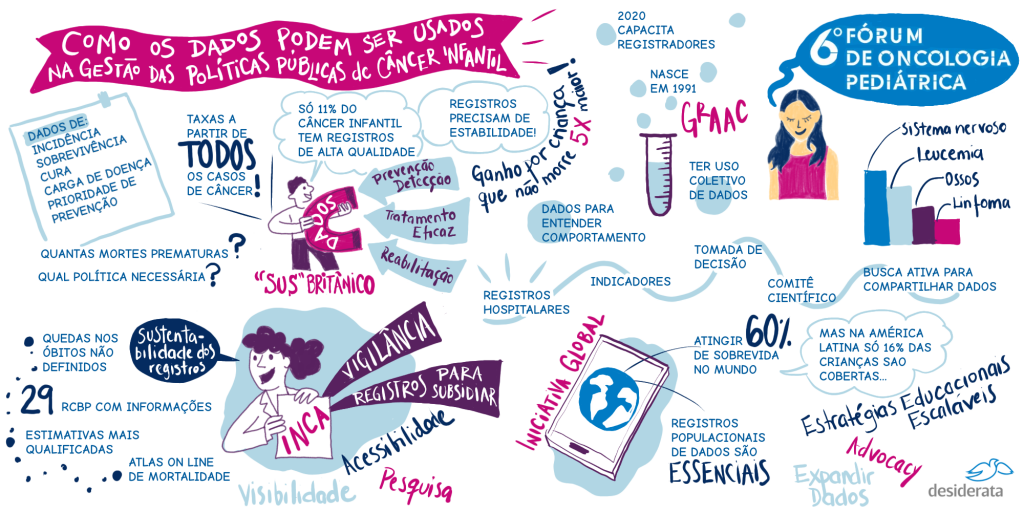 COMO OS DADOS PODEM SER USADOS
NA GESTÃO DAS POLÍTICAS PÚBLICAS de CÂNCER INFANTIL
DADOS DE:
INCIDÊNCIA
SOBREVIVÊNCIA
CURA
CARGA DE DOENÇA
PRIORIDADE DE
PREVENÇÃO
TAXAS A
PARTIR DE
TODOS
OS CASOS
DE CÂNCER!
SÓ 11% DO
CÂNCER INFANTIL
TEM REGISTROS
DE ALTA QUALIDADE
REGISTROS
PRECISAM DE
ESTABILIDADE!
DADOS
Prevenção
Detecção
Tratamento
Eficaz
Reabilitação
"SUS" BRITÂNICO
QUANTAS MORTES PREMATURAS?
QUAL POLÍTICA NECESSÁRIA?
Ganho por criança
que não morre 5X maior!
2020
CAPACITA
REGISTRADORES
NASCE
EM 1991
GRAAC
TER USO
COLETIVO
DE DADOS
DADOS PARA
ENTENDER
COMPORTAMENTO
6º FÓRUM
DE ONCOLOGIA
PEDIÁTRICA
Sistema nervoso
Leucemia
Ossos
Linfoma
REGISTROS
HOSPITALARES
INDICADORES
TOMADA DE
DECISÃO
COMITÊ
CIENTÍFICO
BUSCA ATIVA PARA
COMPARTILHAR DADOS
QUEDAS NOS
ÓBITOS NÃO
DEFINIDOS
29 RCBP COM INFORMAÇÕES
ESTIMATIVAS MAIS
QUALIFICADAS
ATLAS ON LINE
DE MORTALIDADE
Sustenta-
bilidade dos
registros
INCA
VIGILÂNCIA
REGISTROS PARA
SUBSIDIAR
Acessibilidade
Visibilidade
Pesquisa
INICIATIVA GLOBAL
ATINGIR 60%
DE SOBREVIDA
NO MUNDO
REGISTROS
POPULACIONAIS
DE DADOS SÃO
ESSENCIAIS
MAS NA AMÉRICA
LATINA SÓ 16% DAS
CRIANÇAS SAO
COBERTAS...
Estratégias Educacionais
Escaláveis
Advocacy
Expandir
Dados
desiderata